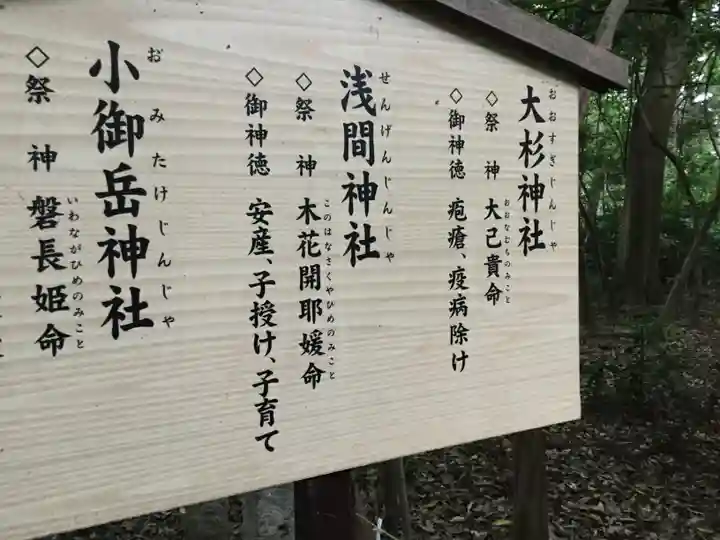 大杉神社
おおすぎじんじゃ
◇祭神 大己貴命
おおなむちのみこと
◇御神徳 疱瘡、疫病除け
浅間神社
せんげんじんじゃ
◇祭神 木花開耶媛命
このはなさくやひめのみこと
◇御神徳 安産、子授け、子育て
小御岳神社
おみたけじんじゃ
◇祭神 磐長姫命
いわながひめのみこと